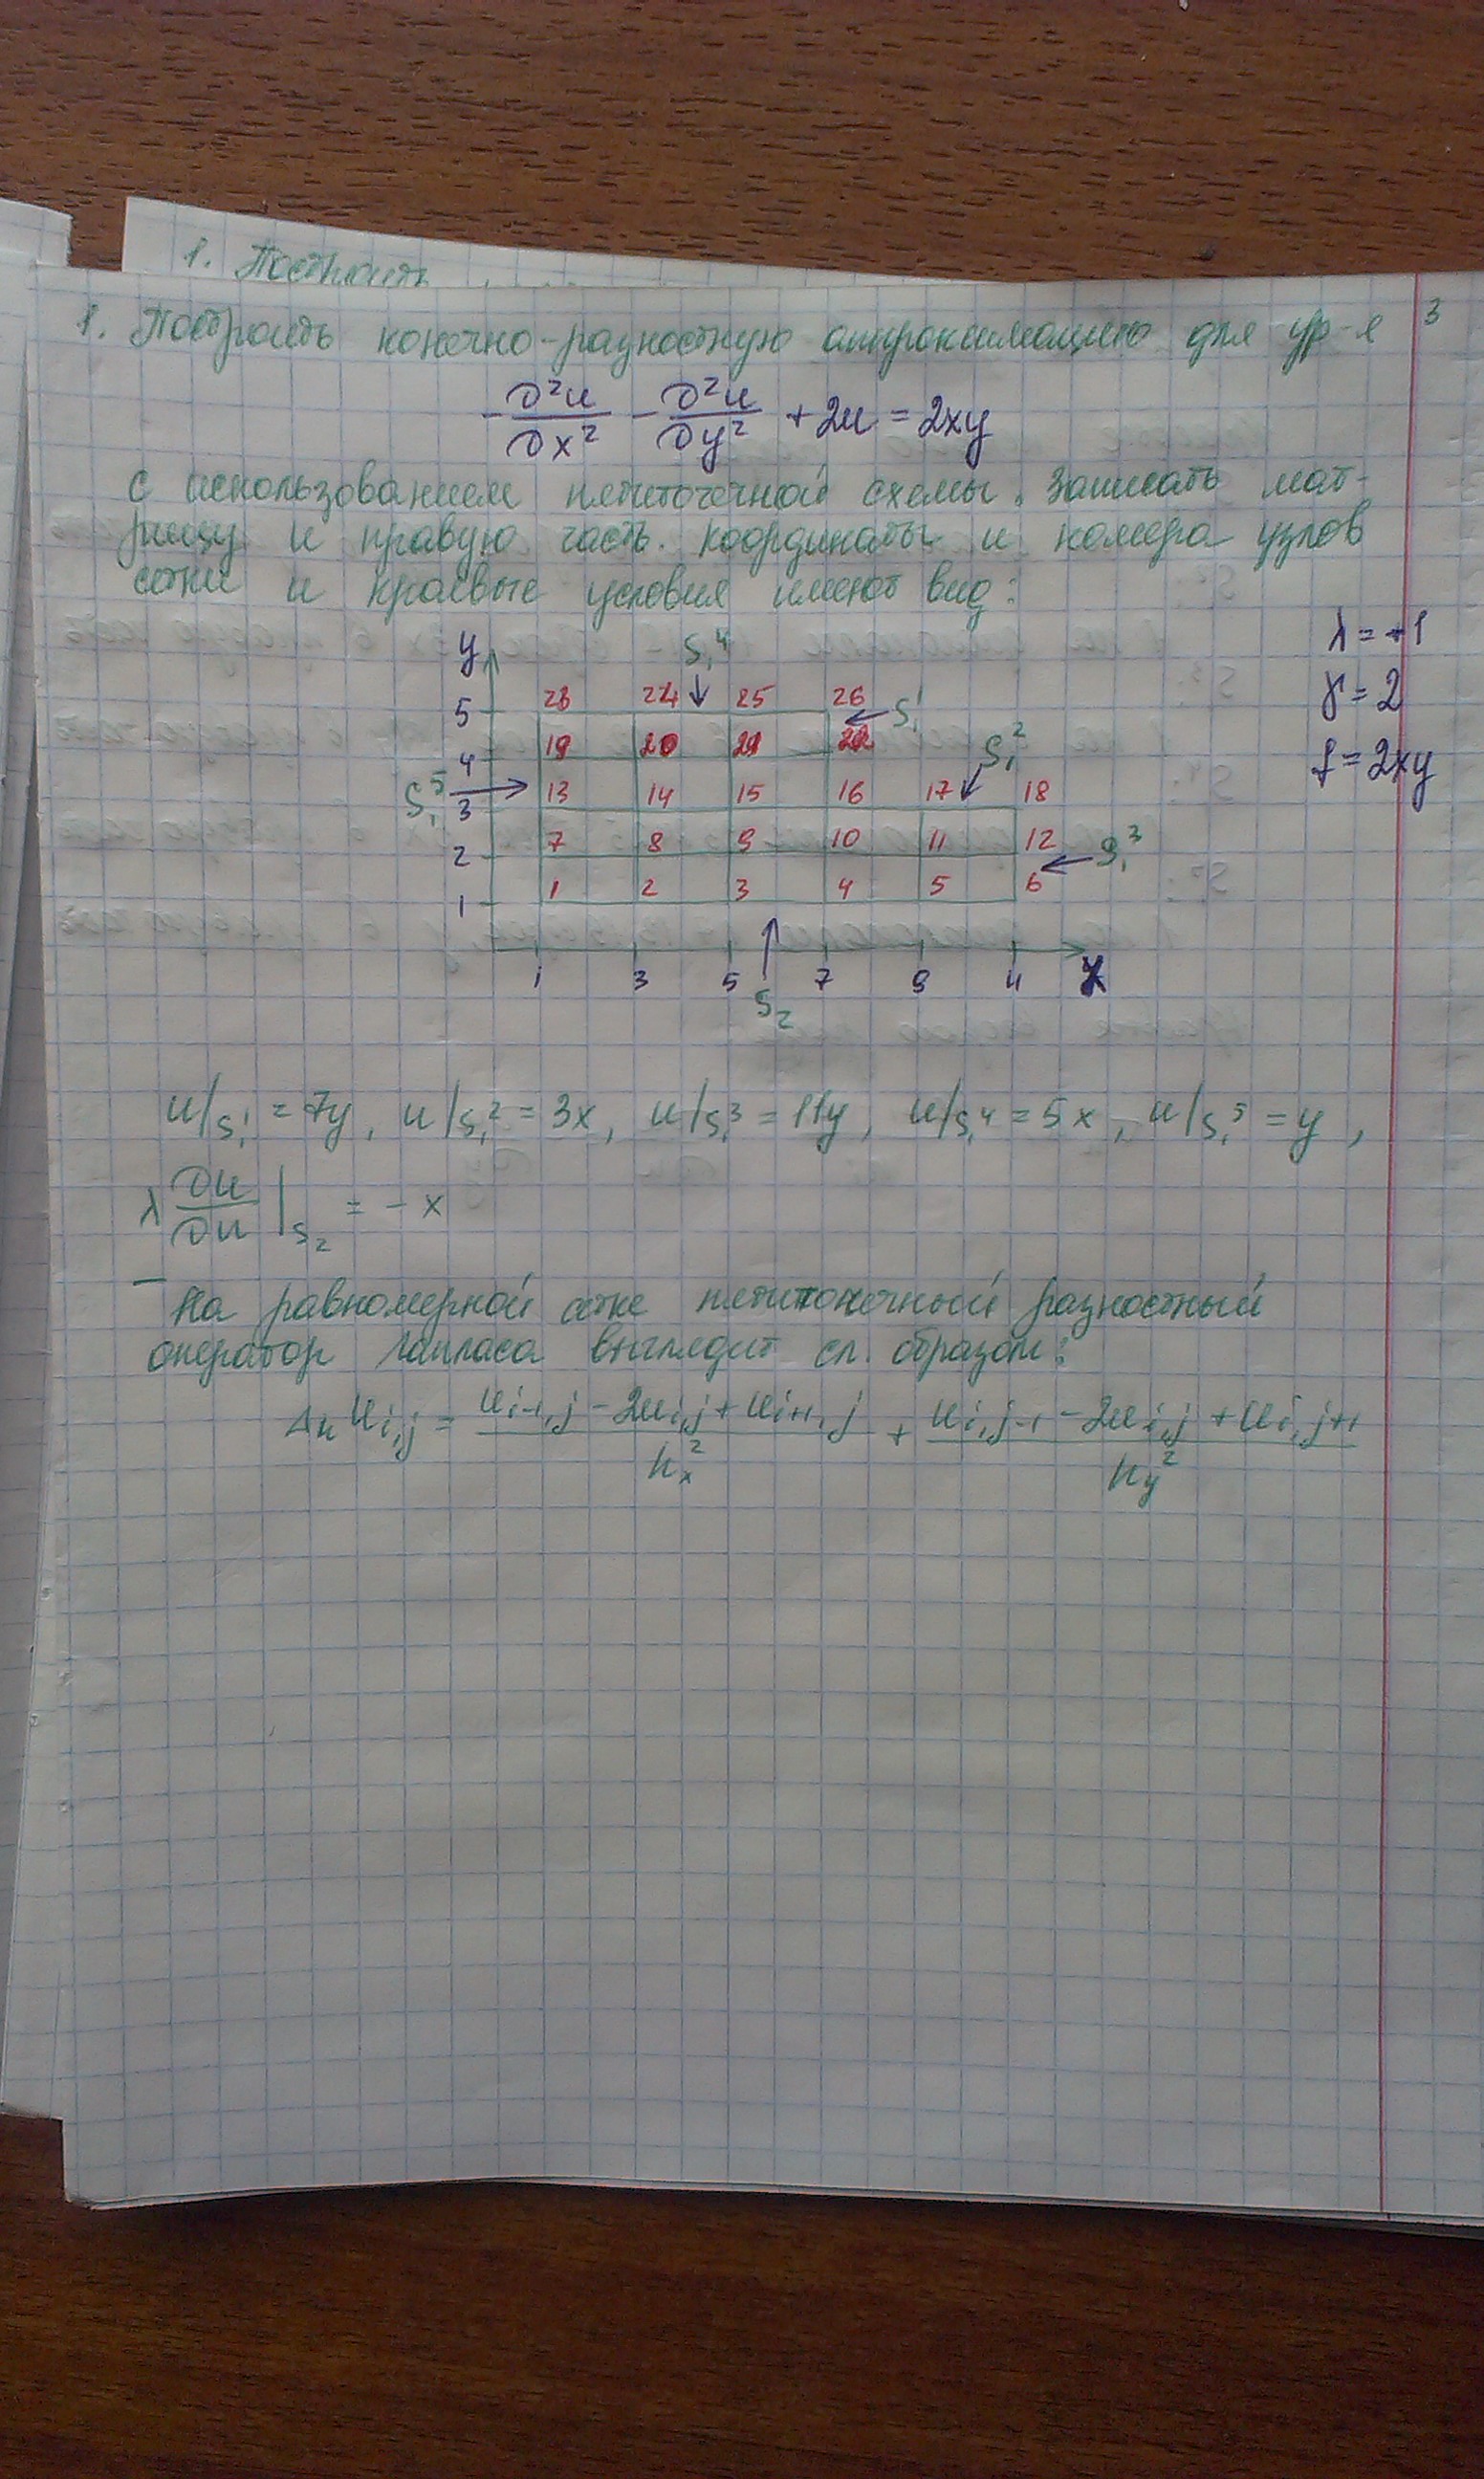 1. Построить
1. Построить конечно-разностную аппроксимацию для ур-я
3
-∂²u/∂x² - ∂²u/∂y² + 2u = 2xy
с использованием пятиточечной схемы. Записать мат-
рицу и правую часть. Координаты и номера узлов
сетки и краевые условия имеют вид:
λ = +1
γ = 2
f = 2xy
y S₁⁴
5 23 24 25 26 S₁¹
4 19 20 21 22 S₁²
S₁⁵ 3 13 14 15 16 17 18
2 7 8 9 10 11 12 S₁³
1 1 2 3 4 5 6
1 3 5 7 9 11 x
S₂
u/S₁¹ = 7y, u/S₁² = 3x, u/S₁³ = 11y, u/S₁⁴ = 5x, u/S₁⁵ = y,
λ ∂u/∂n |S₂ = - x
На равномерной сетке пятиточечный разностный
оператор Лапласа выглядит сл. образом:
Δₕ uᵢ,ⱼ = (uᵢ₋₁,ⱼ - 2uᵢ,ⱼ + uᵢ₊₁,ⱼ)/hₓ² + (uᵢ,ⱼ₋₁ - 2uᵢ,ⱼ + uᵢ,ⱼ₊₁)/h_y²